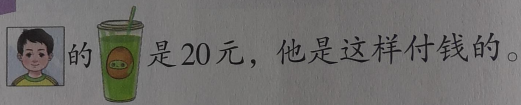 的是20元，他是这样付钱的。